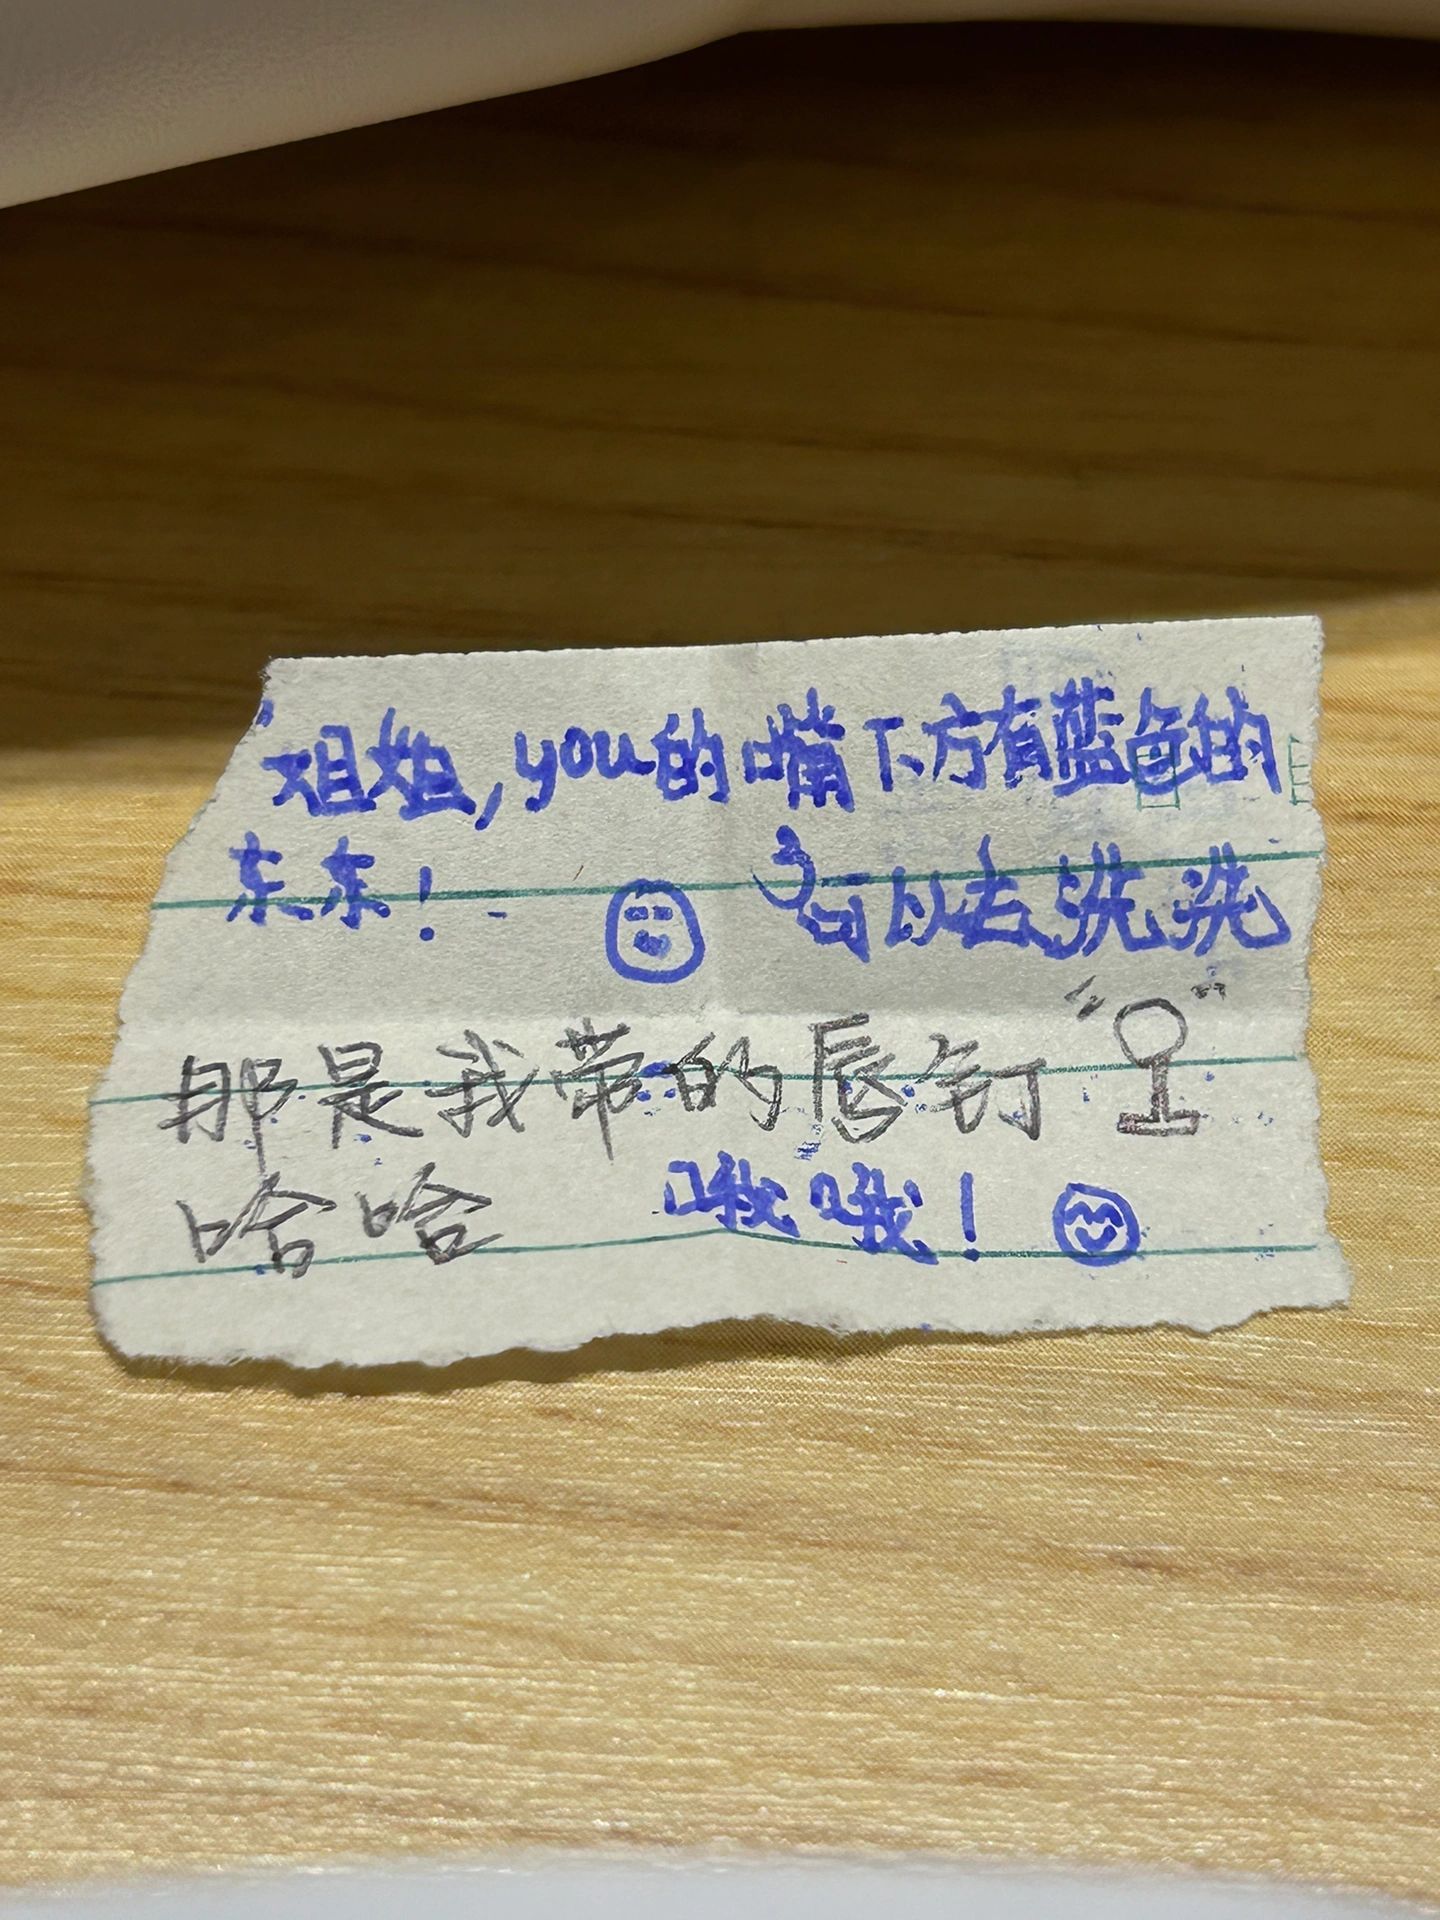 姐姐，you的嘴下方有蓝色的
东东！ 可以去洗洗
那是我带的唇钉
哈哈 哦哦！